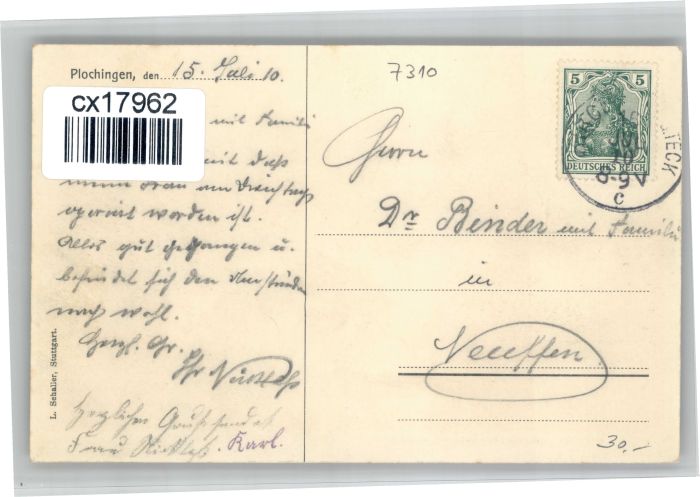 Plochingen, den 15. Juli 10.
cx17962
mit Famili
mit daß
meine Frau am Dienstag
operirt worden ist.
Alles gut gegangen u.
befindet sich den Umständen
nach wohl.
Herzl. Gr.
Ihr
Herzlichen Gruß sendet
Frau
Karl.
L. Schaller, Stuttgart.
7310
5 5
DEUTSCHES REICH
TECK
8-9V
c
Herrn
Dr Binder mit Familie
in
Neuffen
30,-